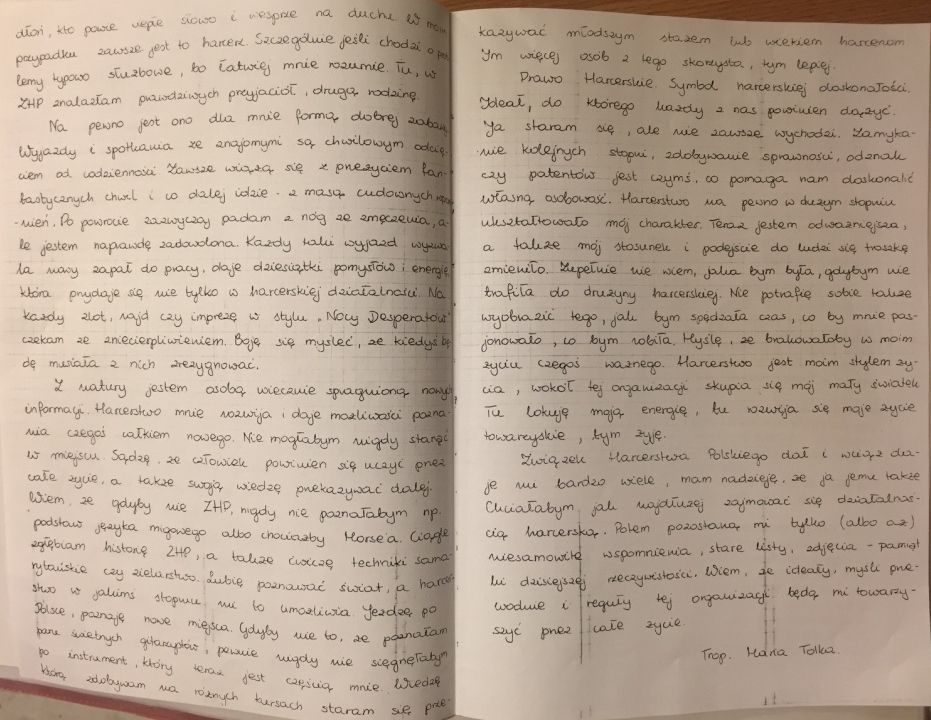 dłoń, kto powie ciepłe słowo i wesprze na duchu. W moim
przypadku zawsze jest to harcerz. Szczególnie jeśli chodzi o prob
lemy typowo służbowe, bo łatwiej mnie rozumie. Tu, w
ZHP znalazłam prawdziwych przyjaciół, drugą rodzinę.
Na pewno jest ono dla mnie formą dobrej zabawy.
Wyjazdy i spotkania ze znajomymi są chwilowym odcię-
ciem od codzienności. Zawsze wiążą się z przeżyciem fan-
tastycznych chwil i co dalej idzie - z masą cudownych wspom
-nień. Po powrocie zazwyczaj padam z nóg ze zmęczenia, a-
le jestem naprawdę zadowolona. Każdy taki wyjazd wyzwa-
la nowy zapał do pracy, daje dziesiątki pomysłów i energię,
która przydaje się nie tylko w harcerskiej działalności. Na
każdy zlot, rajd czy imprezę w stylu "Nocy Desperatów"
czekam ze zniecierpliwieniem. Boję się myśleć, że kiedyś bę
dę musiała z nich zrezygnować.
Z natury jestem osobą wiecznie spragnioną nowych
informacji. Harcerstwo mnie rozwija i daje możliwości pozna-
nia czegoś całkiem nowego. Nie mogłabym nigdy stanąć
w miejscu. Sądzę, że człowiek powinien się uczyć przez
całe życie, a także swoją wiedzę przekazywać dalej.
Wiem, że gdyby nie ZHP, nigdy nie poznałabym np.
podstaw języka migowego albo chociażby Morse'a. Ciągle
zgłębiam historię ZHP, a także ćwiczę techniki sama-
rytańskie czy zielarstwo. Lubię poznawać świat, a harcer-
stwo w jakimś stopniu mi to umożliwia. Jeżdżę po
Polsce, poznaję nowe miejsca. Gdyby nie to, że poznałam
parę świetnych gitarzystów, pewnie nigdy nie sięgnęłabym
po instrument, który teraz jest częścią mnie. Wiedzę
którą zdobywam na różnych kursach staram się prze-
kazywać młodszym stażem lub wiekiem harcerzom
Im więcej osób z tego skorzysta, tym lepiej.
Prawo Harcerskie. Symbol harcerskiej doskonałości.
Ideał, do którego każdy z nas powinien dążyć.
Ja staram się, ale nie zawsze wychodzi. Zamyka-
-nie kolejnych stopni, zdobywanie sprawności, odznak
czy patentów jest czymś, co pomaga nam doskonalić
własną osobowość. Harcerstwo na pewno w dużym stopniu
ukształtowało mój charakter. Teraz jestem odważniejsza,
a także mój stosunek i podejście do ludzi się troszkę
zmieniło. Zupełnie nie wiem, jaka bym była, gdybym nie
trafiła do drużyny harcerskiej. Nie potrafię sobie także
wyobrazić tego, jak bym spędzała czas, co by mnie pas-
jonowało, co bym robiła. Myślę, że brakowałoby w moim
życiu czegoś ważnego. Harcerstwo jest moim stylem ży-
cia, wokół tej organizacji skupia się mój mały światek
Tu lokuję moją energię, tu rozwija się moje życie
towarzyskie, tym żyję.
Związek Harcerstwa Polskiego dał i wciąż da-
je mi bardzo wiele, mam nadzieję, że ja jemu także
Chciałabym jak najdłużej zajmować się działalnoś-
cią harcerską. Potem pozostaną mi tylko (albo aż)
niesamowite wspomnienia, stare listy, zdjęcia - pamiąt
ki dzisiejszej rzeczywistości. Wiem, że ideały, myśli prze-
wodnie i reguły tej organizacji będą mi towarzy-
szyć przez całe życie.
Trop. Maria Tolka.